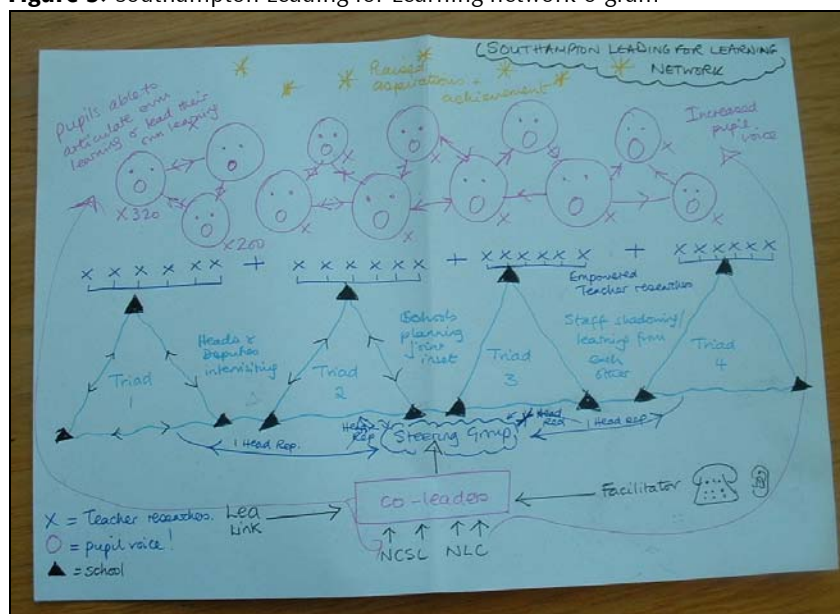 Figure 3: Southampton Leading for Learning network o-gram
(SOUTHAMPTON LEADING FOR LEARNING
NETWORK
Raised
aspirations +
achievement
Pupils able to
articulate own
learning & lead their
own learning
Increased
pupil
voice
X320
X200
X X X X X X + X X X X X X + X X X X X X + X X X X X X
Empowered
Teacher researchers
Heads &
Deputies
intervisiting
Schools
planning
joint
inset
Staff shadowing/
learning from
each
other
Triad
1
Triad
2
Triad
3
Triad
4
1 Head Rep.
Head
Rep
Steering Group
Head
1 Head Rep
co-leaders
Facilitator
Lea
Link
NCSL NLC
X = Teacher researchers.
O = pupil voice!
▲ = school